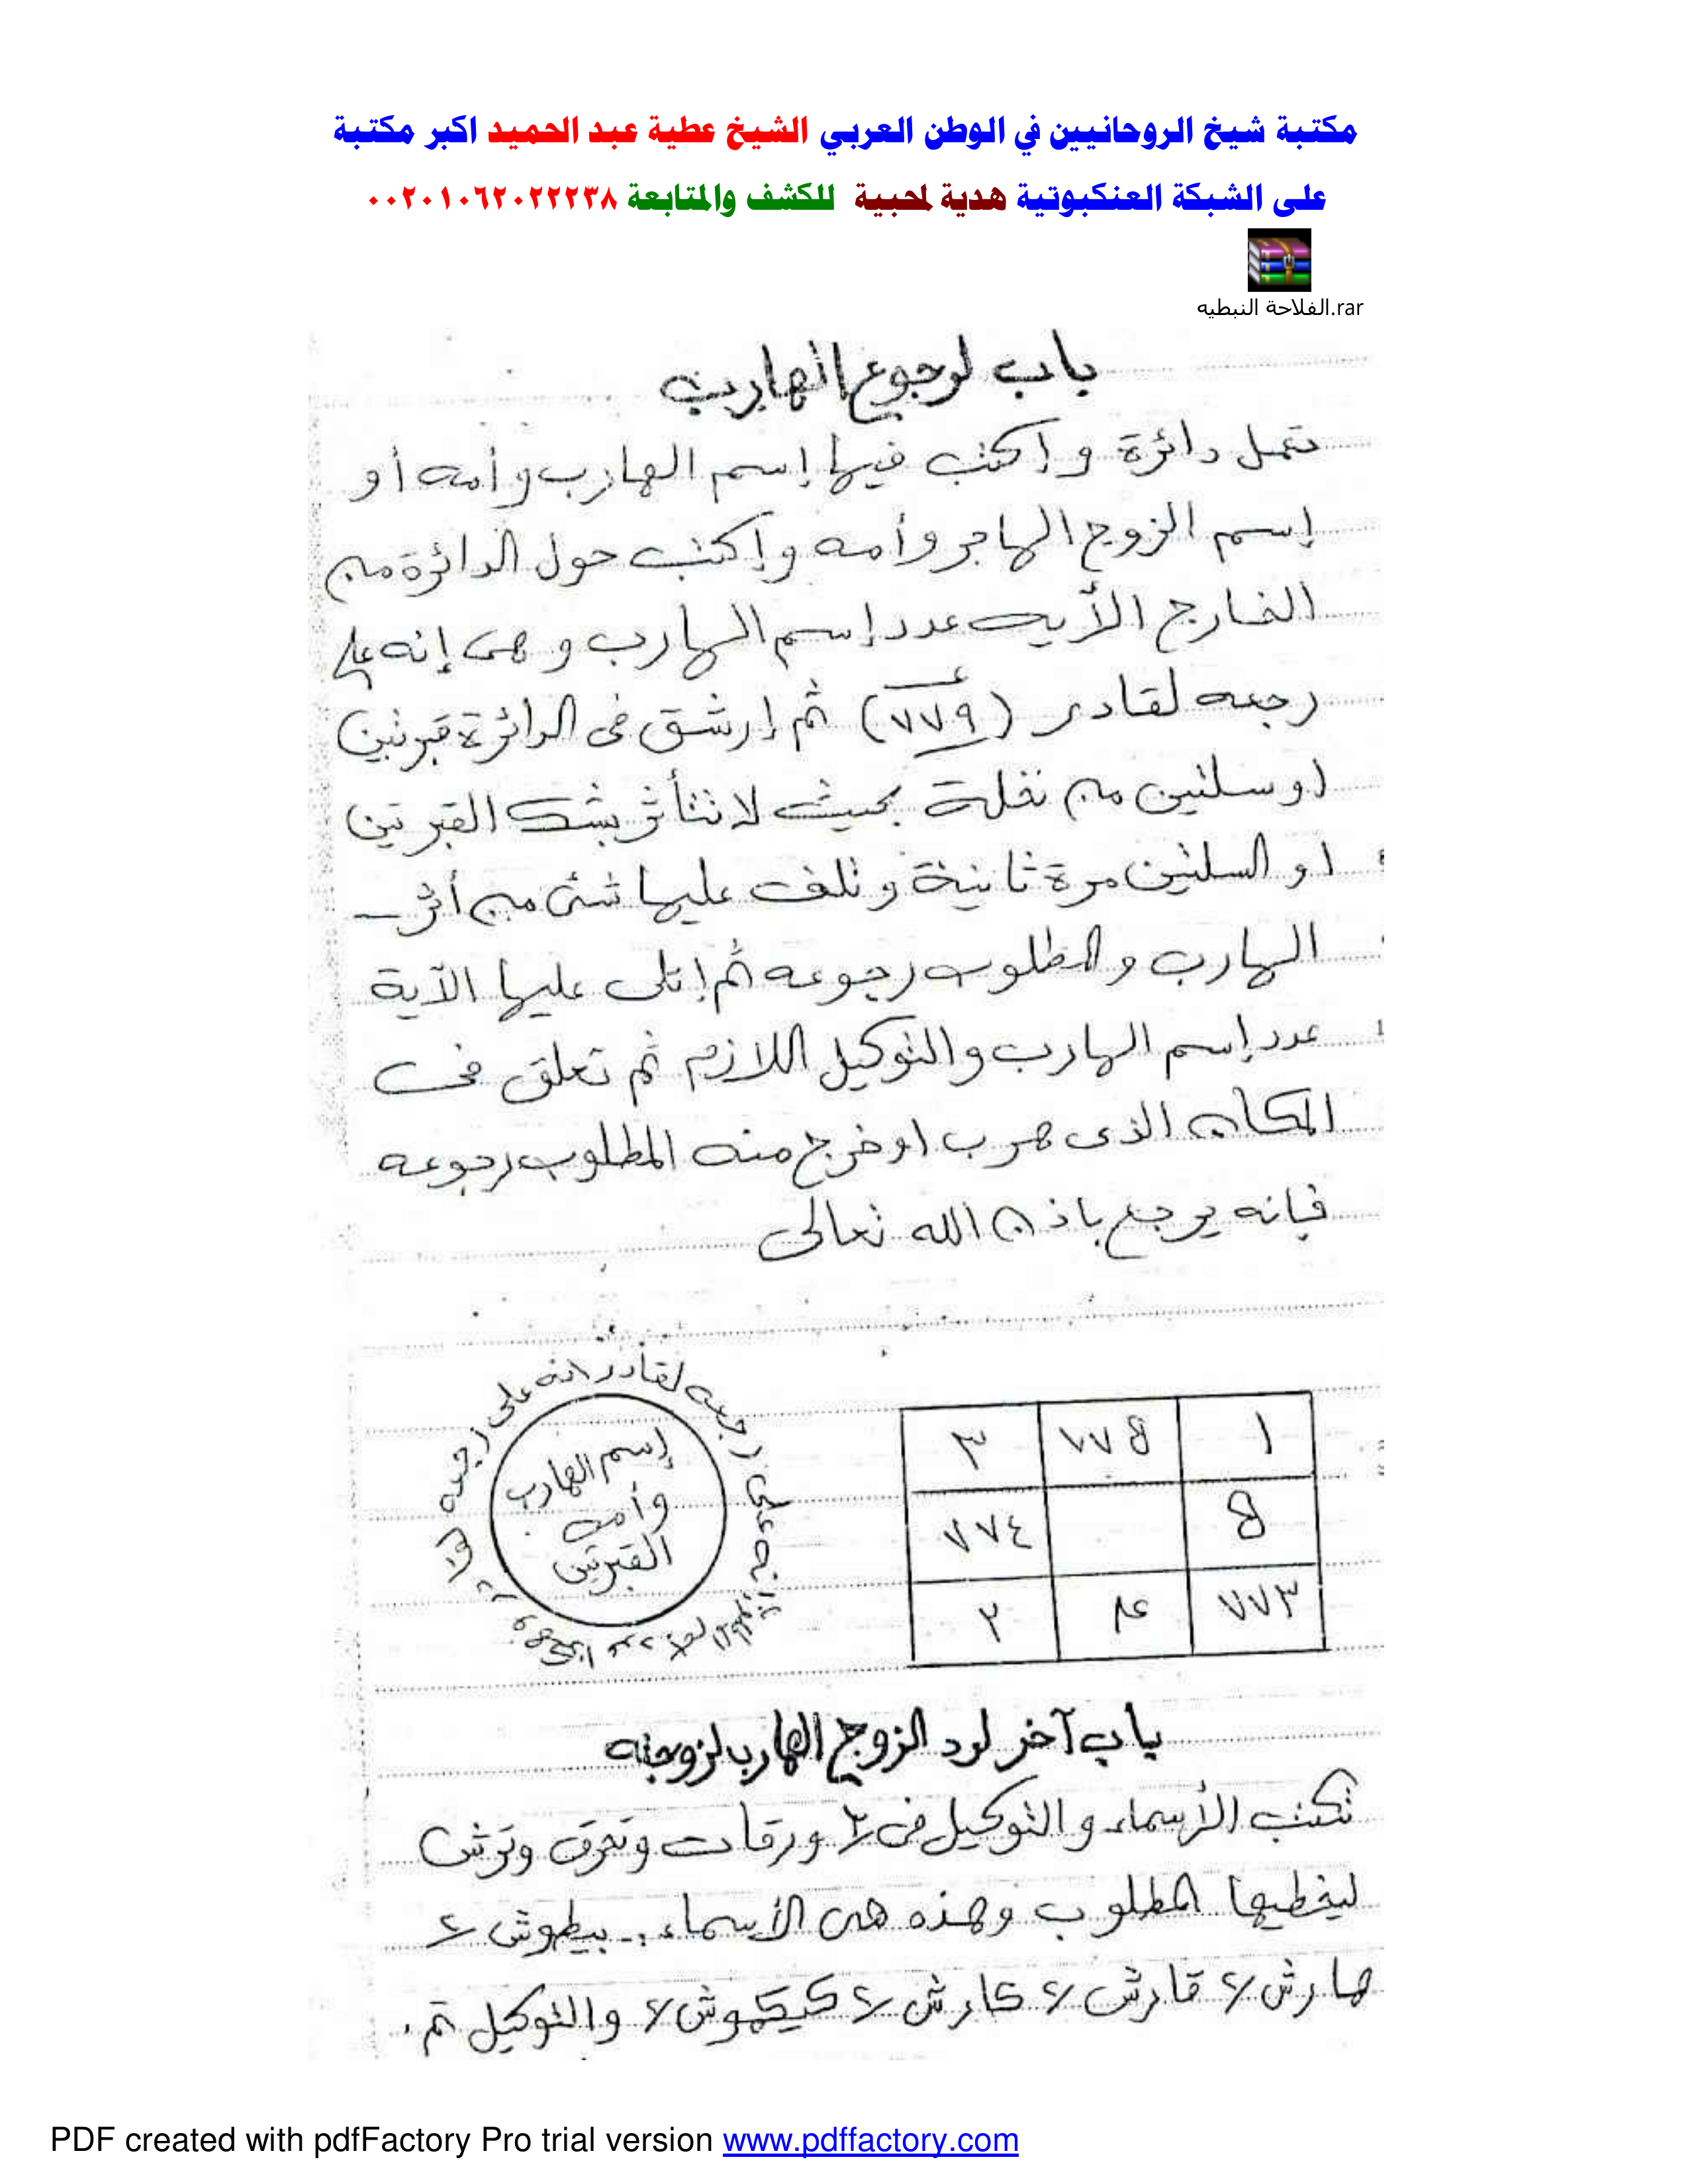 مكتبة شيخ الروحانيين في الوطن العربي الشيخ عطية عبد الحميد اكبر مكتبة
على الشبكة العنكبوتية هدية لمحبية للكشف والمتابعة ٠٠٢٠١٠٦٢٠٢٢٢٣٨
الفلاحة النبطيه.rar
باب لرجوع الهارب
تعمل دائرة وإكتب فيها إسم الهارب وأمه أو
إسم الزوج الهاجر وأمه وإكتب حول الدائرة من
الخارج الأيه عدد إسم الهارب وهى إنه على
رجعه لقادر (٧٧٩) ثم إرشق فى الدائرة قبرتين
او سلتين من نخلة بحيث لا تتأثر بشك القبرتين
او السلتين مرة ثانية وتلف عليها شئ من أثر
الهارب والمطلوب رجوعه ثم إتلى عليها الآية
عدد إسم الهارب والتوكيل اللازم ثم تعلق فى
المكان الذى هرب او خرج منه المطلوب رجوعه
فإنه يرجع باذن الله تعالى
١ ٧٧٥ ٣
٥ ٧٧٤
٧٧٣ ٤ ٢
انه على رجعه لقادر انه على رجعه لقادر
إسم الهارب
وأمه
القبرتين
باب آخر لرد الزوج الهارب لزوجته
تكتب الأسماء والتوكيل فى ٣ ورقات وتحرق وترش
ليخطيها المطلوب وهذه هى الأسماء :ـ بيطوش ٢
هارش ٢ قارش ٢ كارش ٢ كيكموش ٢ والتوكيل تم.
PDF created with pdfFactory Pro trial version www.pdffactory.com